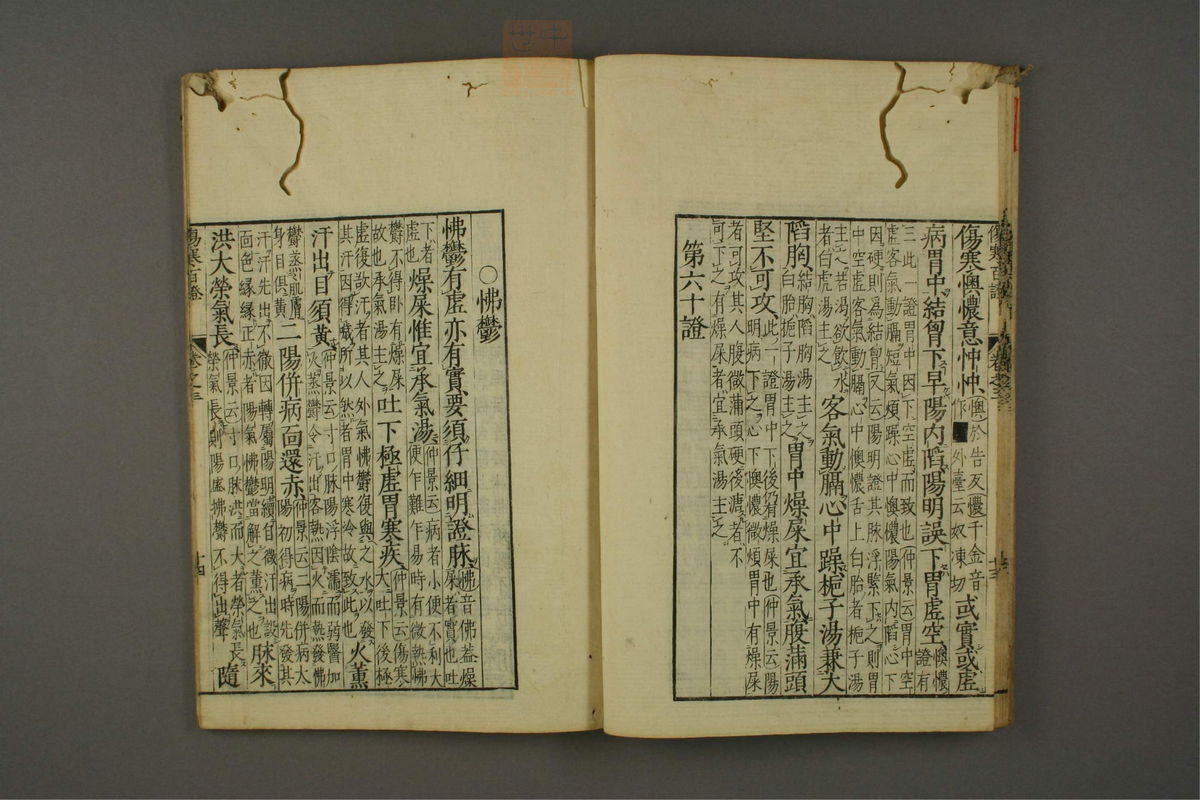 傷寒懊憹意忡忡(懊於告反憹千金音作■外臺云奴凍切)或實或虛
病胃中結胷下早陽內䧟陽明誤下胃虛空懊憹證有
三此一證胃中因下空虛而致也仲景云胃中空
虛客氣動膈短氣煩躁心中懊憹陽氣內䧟心下
因硬則為結胷又云陽明證其脉浮緊下之則胃
中空虛客氣動膈心中懊憹舌上白胎者梔子湯
主之若渴欲飲水
者白虎湯主之客氣動膈心中躁梔子湯兼大
䧟胸結胸䧟胸湯主之
白胎梔子湯主之胃中燥屎宜承氣腹滿頭
堅不可攻此一證胃中下後仍有燥屎也仲景云陽
明病下之心下懊憹微煩胃中有燥屎
者可攻其人腹微滿頭硬後溏者不
可下之有燥屎者宜承氣湯主之
第六十證
傷寒百證
卷之三
十三
○怫鬱
怫鬱有虛亦有實要須仔細明證脉怫音佛蓋燥
屎者實也吐
下者
虛也燥屎惟宜承氣湯仲景云病者小便不利大
便乍難乍易時有微熱怫
鬱不得卧有燥屎
故也承氣湯主之吐下極虛胃寒疾仲景云傷寒
大吐下後極
虛復極汗者其人外氣怫鬱復與之水以發
其汗因得噦所以然者胃中寒冷故致此也火薰
汗出目須黃仲景云寸口脉陽浮陰濡而弱醫加
火蒸鬱令汗出客熱因火而熱發怫
鬱蒸肌膚
身目俱黃二陽併病面還赤仲景云二陽併病太
陽初得病時先發其
汗汗先出不徹因轉屬陽明續自微汗出設
面色緣緣正赤者陽氣怫鬱當解之薰之也脉來
洪大榮氣長仲景云寸口脉洪而大者榮氣長
榮氣長則陽盛拂鬱不得出聲隨
傷寒百證
卷之三
十四